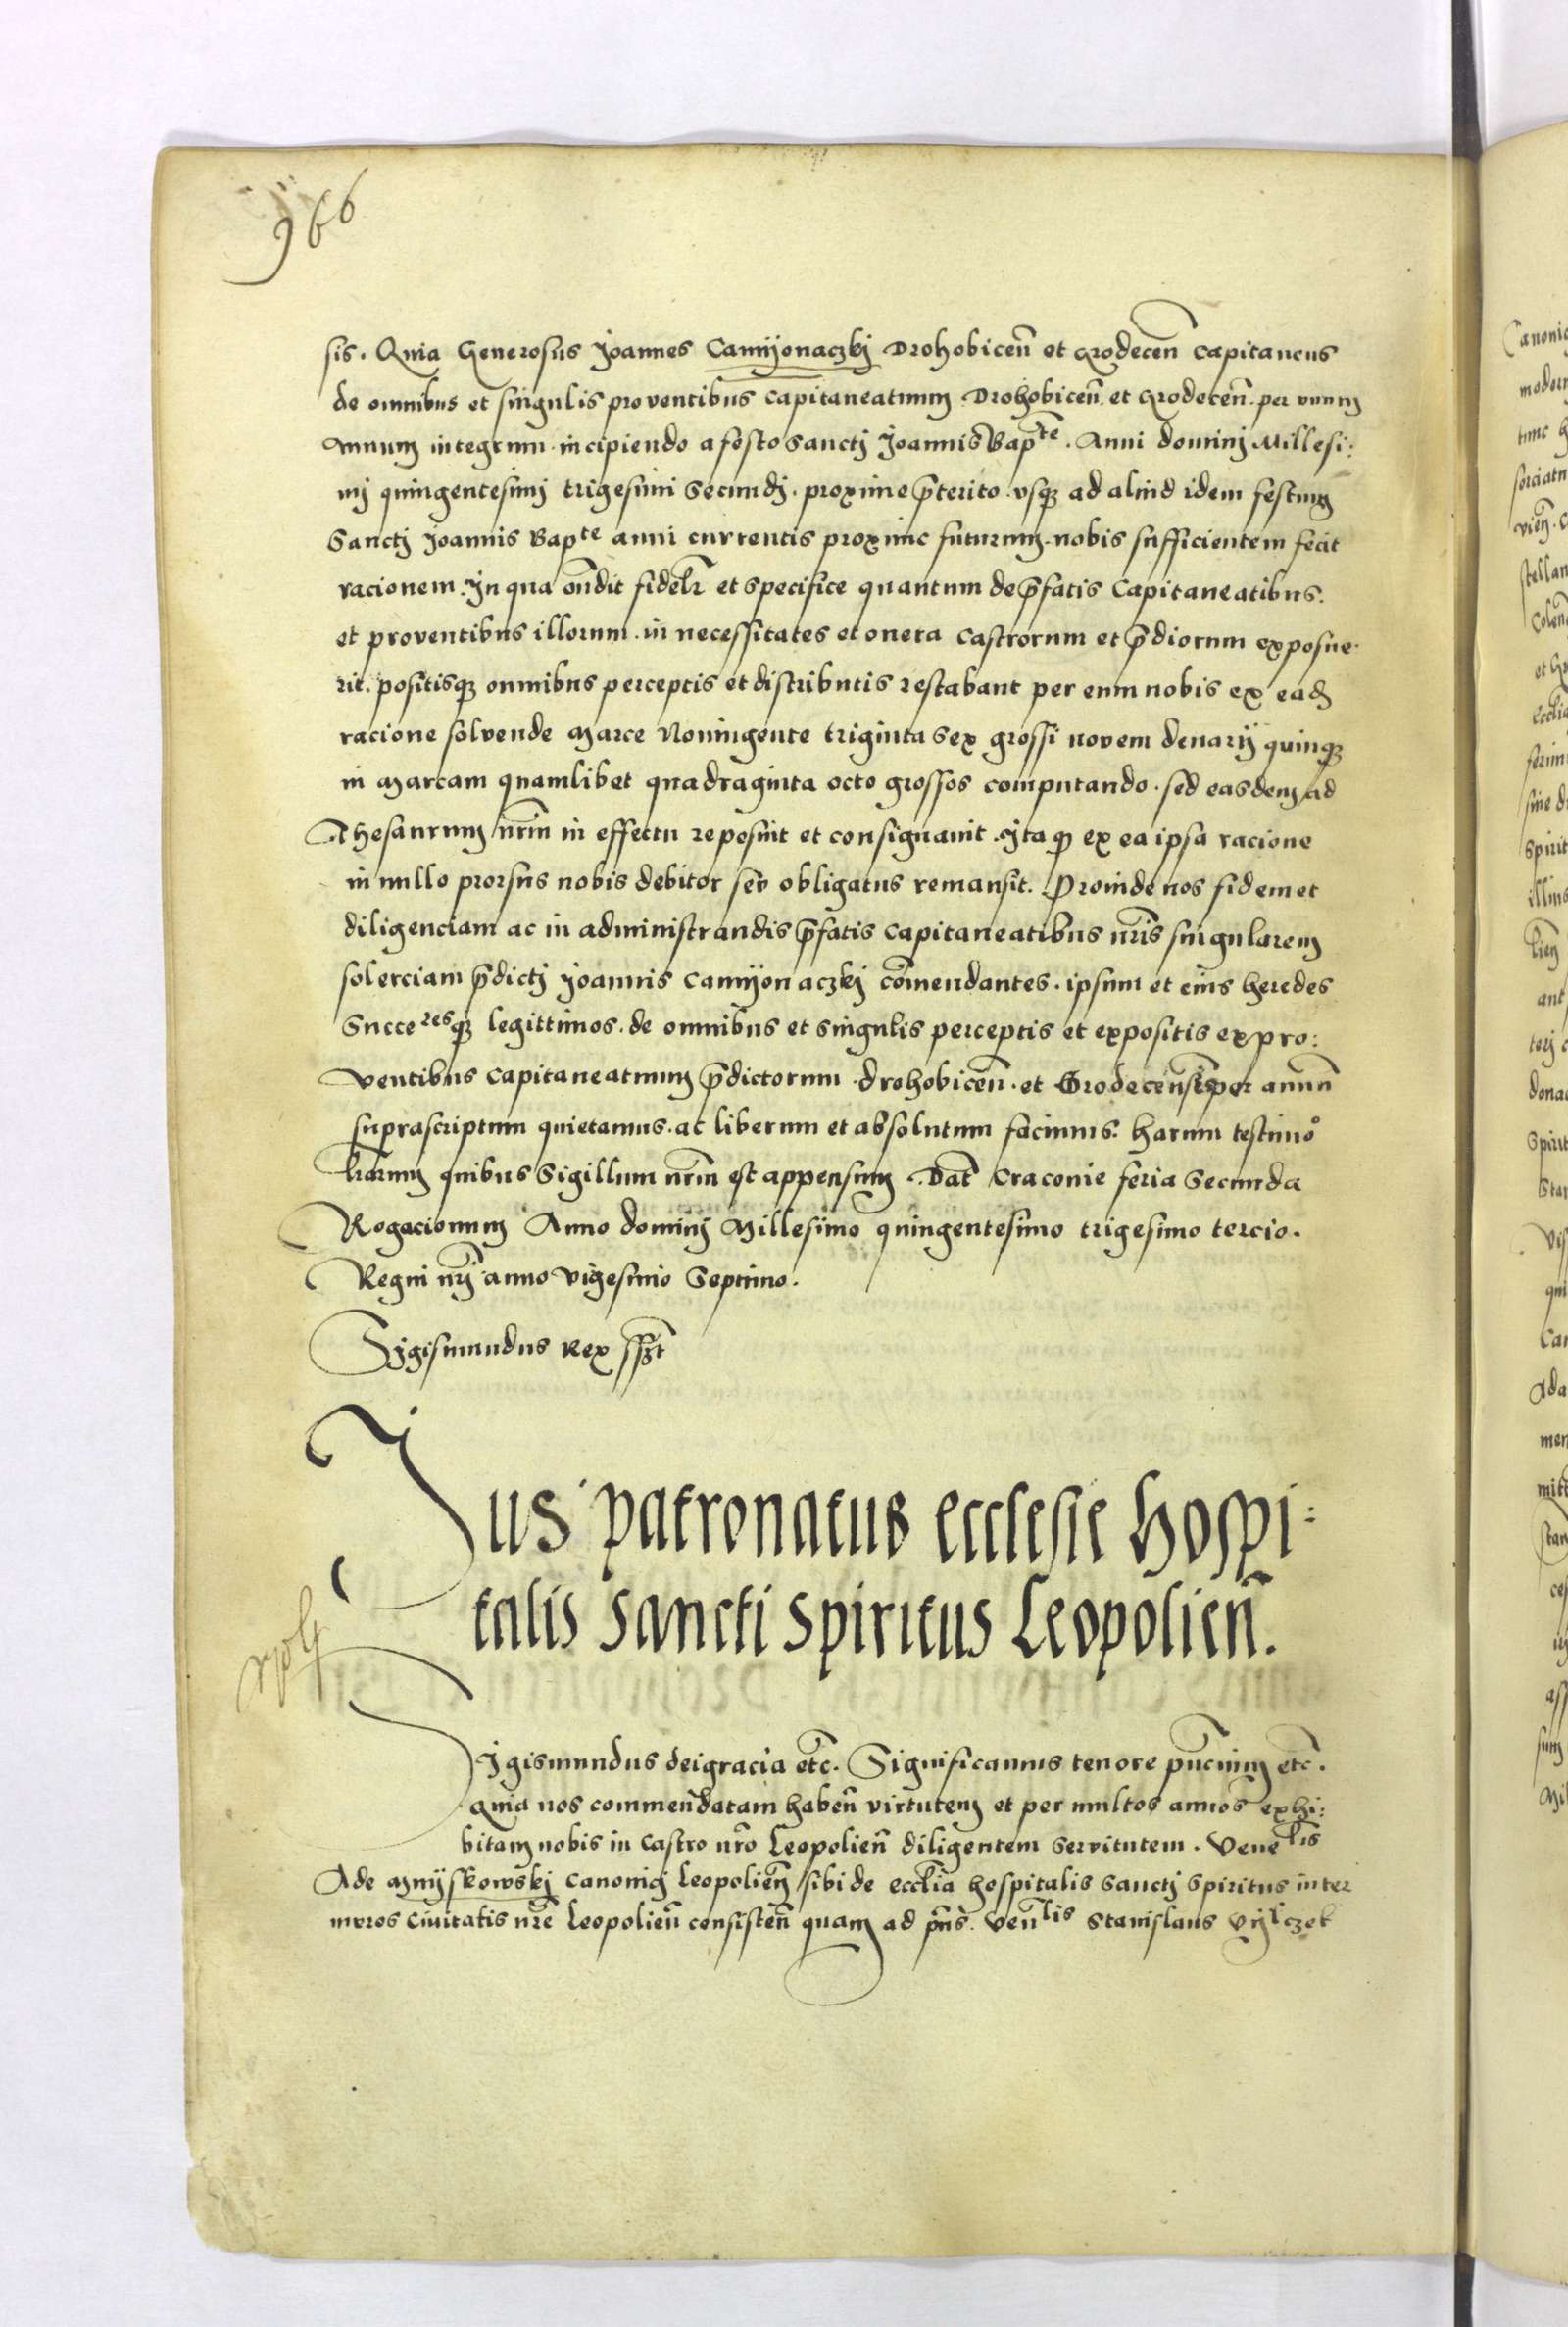 966
sis. Quia Generosus Joannes Camyonaczkj Drohobiceñ et Grodeceñ Capitaneus
de omnibus et singulis proventibus Capitaneatuum Drohobiceñ. et Grodeceñ. per unum
annum integrum incipiendo a festo Sanctj Joannis Bapte. Anni dominj Millesi:
mj quingentesimj trigesimi Secundj. proxime p̃terito. usq3 ad aliud idem festum
Sanctj Joannis Bapte anni currentis proxime futurum. nobis sufficientem fecit
racionem. In qua oñdit fidelr̃ et specifice quantum de p̃fatis Capitaneatibus.
et proventibus illorum. in necessitates et onera Castrorum et p̃diorum exposue
rit. positisq3 omnibus perceptis et distributis restabant per eum nobis ex ead
racione solvende Marce Noningente triginta Sex grossi novem denarij quinq3
in Marcam quamlibet quadraginta octo grossos computando. sed easdem ad
Thesaurum nr̃m in effectu reposuit et consignavit. Ita q ex ea ipsa racione
in nullo prorsus nobis debitor seu obligatus remansit. Proinde nos fidem et
diligenciam ac in administrandis p̃fatis Capitaneatibus nr̃is singularem
solerciam p̃dictj Joannis Camyonaczkj com̃endantes. ipsum et eius heredes
Succeresq3 legittimos. de omnibus et singulis perceptis et expositis ex pro:
ventibus Capitaneatuum p̃dictorum drohobiceñ. et Grodeceñsis per annum
suprascriptum quietamus. ac liberum et absolutum facimus. harum testimo
lr̃arum quibus Sigillum nr̃m est appensum. Dat̃ Cracovie feria Secunda
Rogacionum Anno dominj Millesimo quingentesimo trigesimo tercio.
Regni nrj̃ anno vigesimo Septimo.
Sigismundus Rex sszt
Jus patronatus ecclesie Hospi:
talis Sancti Spiritus Leopolieñ.
Sigismundus dei gracia etc̃. Significamus tenore pñcium etc̃.
quia nos commendatam habeñ virtutem et per multos annos exhi:
bitam nobis in Castro nr̃o Leopolieñ diligentem Servitutem. Venelis
Ade Myskowskj Canonicj Leopolieñ sibi de eccl̃ia hospitalis Sanctj Spiritus inter
muros Civitatis nr̃e Leopolieñ consisteñ quam ad pñs. Veñlis Stanislaus Vylczek